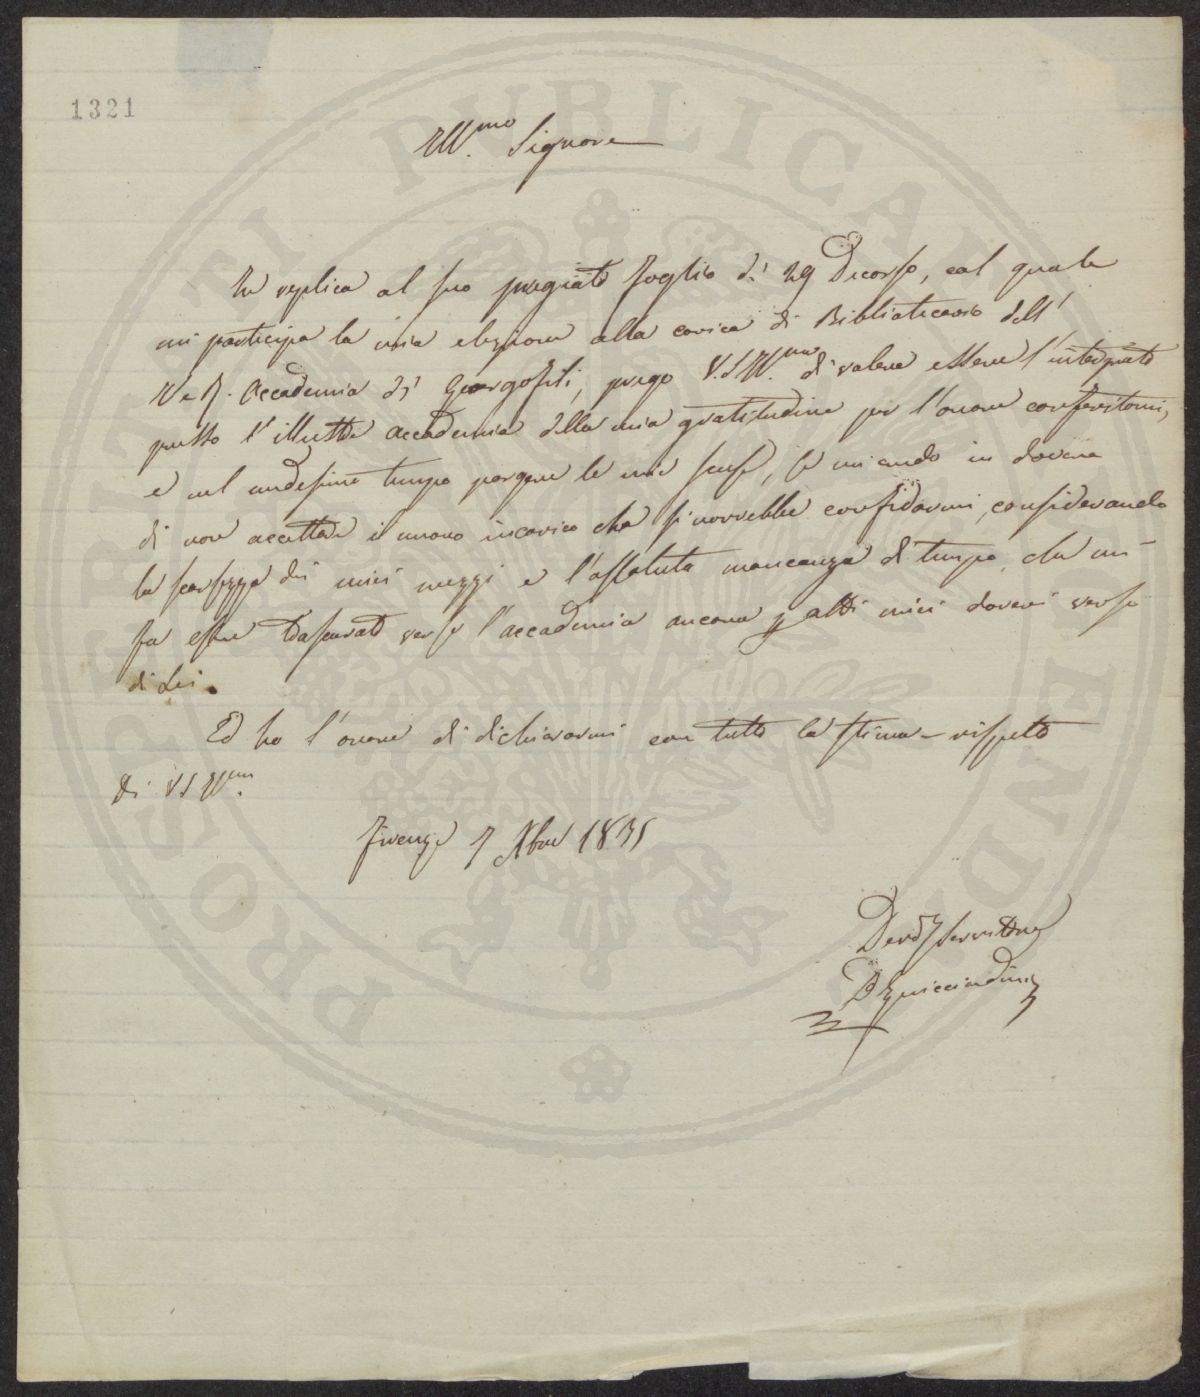 1321
Ill.mo Signore
In replica al suo pregiato foglio di 29 Decorso, col quale
mi partecipa la mia elezione alla carica di Bibliotecario dell'
I. e R. Accademia dei Georgofili, prego V.S. Ill.ma di volere essere l'interprete
presso l'illustre accademia della mia gratitudine per l'onore conferitomi,
e nel medesimo tempo porgere le mie scuse, se mi credo in dovere
di non accettare il nuovo incarico che si vorrebbe confidarmi, considerando
la scarsezza dei miei mezzi e l'assoluta mancanza di tempo, che mi
fa essere trascurato verso l'accademia ancora p altri miei doveri verso
di Lei.
Ed ho l'onore di dichiararmi con tutta la stima e rispetto
Di V.S. Ill.ma
Firenze 7 Xbre 1835
Dev. Servitore
Guicciardini
PROSPERITATI PUBLICAE AUGENDAE